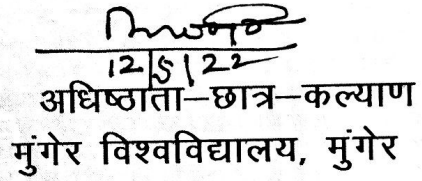 12/5/22
अधिष्ठाता–छात्र–कल्याण
मुंगेर विश्वविद्यालय, मुंगेर